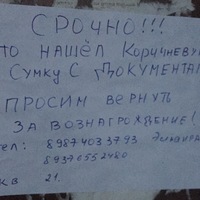 СРОЧНО!!!
ТО НАШЁЛ КОРИЧНЕВУ
СУМКУ С ДОКУМЕНТА
ПРОСИМ ВЕРНУТЬ
ЗА ВОЗНАГРОЖДЕНИЕ!
тел: 89874033793
89376552480
кв 21.